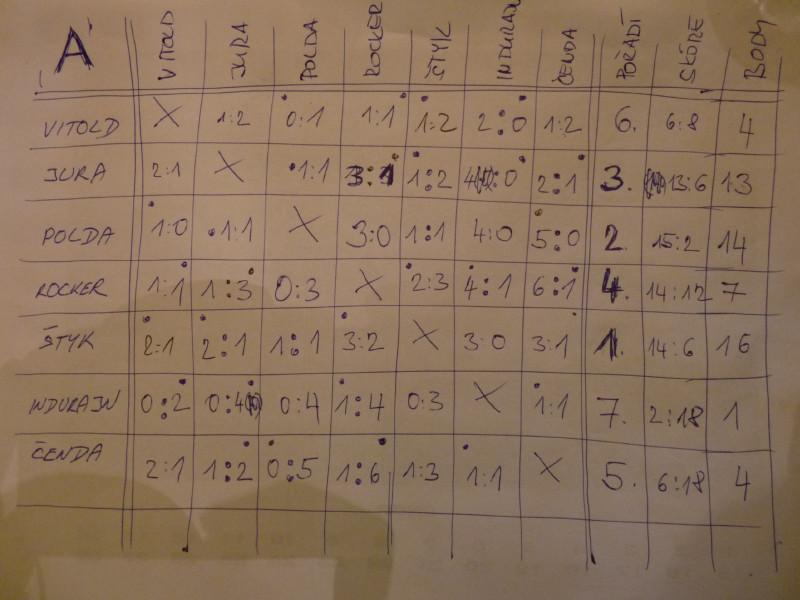 A VITOLD JURA POLDA ROCKER ŠTYK INDURAIN ČENDA POŘADÍ SKÓRE BODY
VITOLD X 1:2 0:1 1:1 1:2 2:0 1:2 6. 6:8 4
JURA 2:1 X 1:1 3:1 1:2 4:0 2:1 3. 13:6 13
POLDA 1:0 1:1 X 3:0 1:1 4:0 5:0 2. 15:2 14
ROCKER 1:1 1:3 0:3 X 2:3 4:1 6:1 4. 14:12 7
ŠTYK 2:1 2:1 1:1 3:2 X 3:0 3:1 1. 14:6 16
INDURAIN 0:2 0:4 0:4 1:4 0:3 X 1:1 7. 2:18 1
ČENDA 2:1 1:2 0:5 1:6 1:3 1:1 X 5. 6:18 4